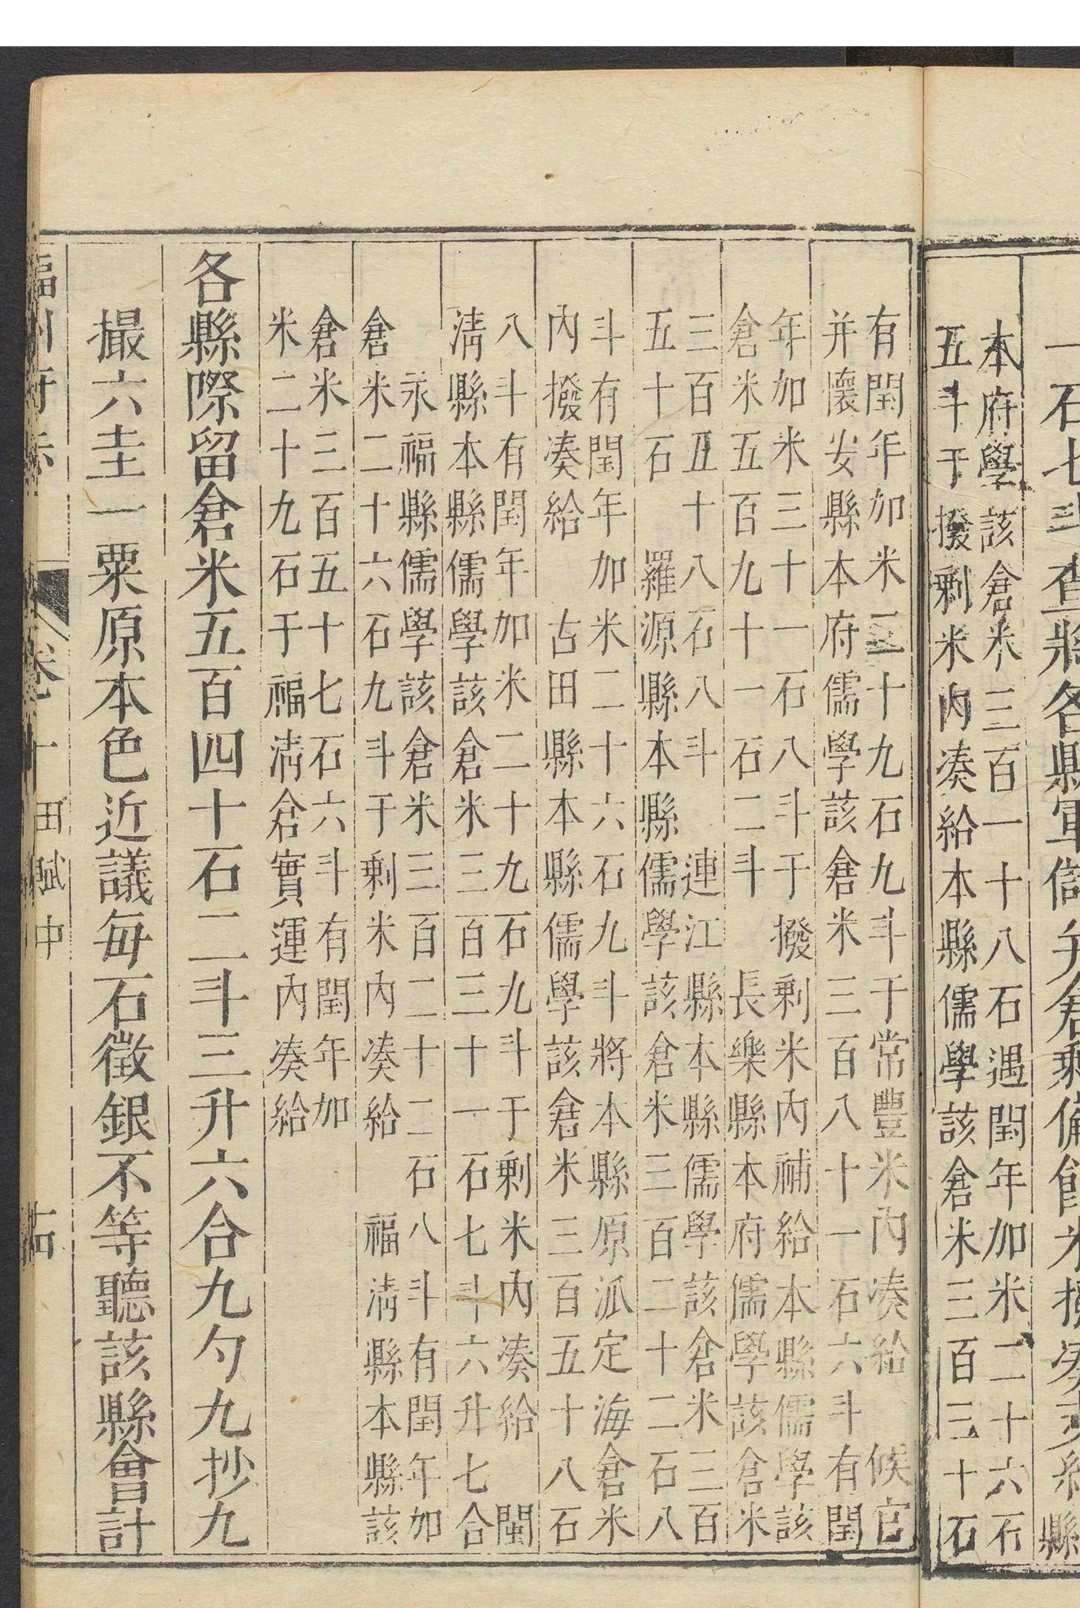 一石七斗查將各縣軍儲
本府學該倉米三百一十八石遇閏年加米二十六石
五斗于撥剩米內湊給本縣儒學該倉米三百三十石
有閏年加米三十九石九斗于常豐米內湊給　候官
并懷安縣本府儒學該倉米三百八十一石六斗有閏
年加米三十一石八斗于撥剩米內補給本縣儒學該
倉米五百九十一石二斗　長樂縣本府儒學該倉米
三百五十八石八斗　連江縣本縣儒學該倉米三百
五十石　羅源縣本縣儒學該倉米三百二十二石八
斗有閏年加米二十六石九斗將本縣原派定海倉米
內撥湊給　古田縣本縣儒學該倉米三百五十八石
八斗有閏年加米二十九石九斗于剩米內湊給　閩
清縣本縣儒學該倉米三百三十一石七斗六升七合
永福縣儒學該倉米三百二十二石八斗有閏年加
倉米二十六石九斗于剩米內湊給　福清縣本縣該
倉米三百五十七石六斗有閏年加
米二十九石于福清倉實運內湊給
各縣際留倉米五百四十石二斗三升六合九勺九抄九
撮六圭一粟原本色近議每石徵銀不等聽該縣會計
福州府志　卷十　田賦中